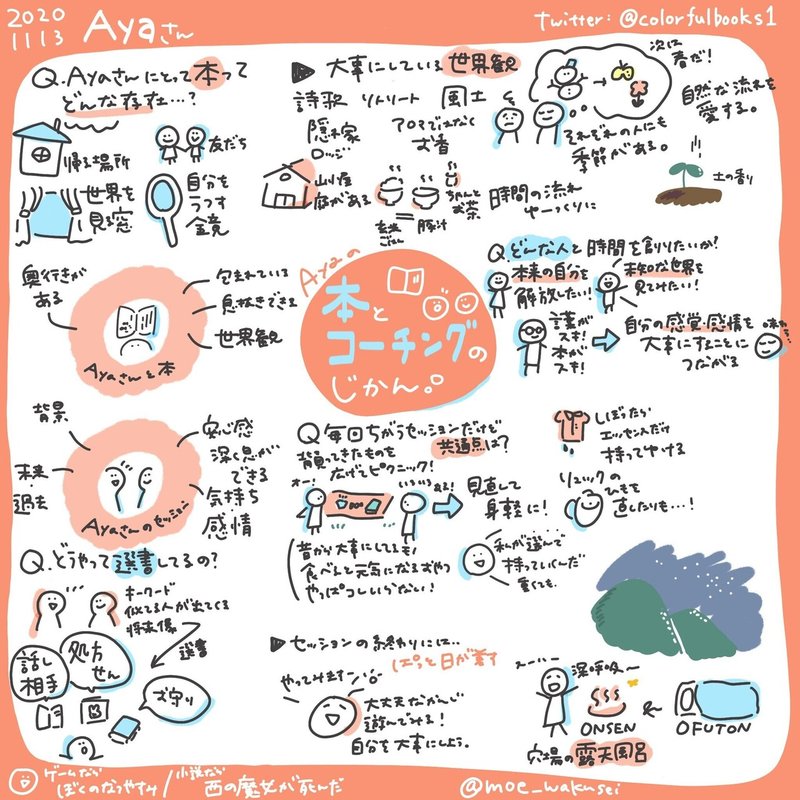 2020
1113
Ayaさん
twitter: @colorfulbooks1
Q.Ayaさんにとって本って
どんな存在…?
帰る場所
友だち
世界を
見る窓
自分を
うつす
鏡
▶大事にしている世界観
詩歌 リトリート 風土
隠れ家
ロッジ
アロマではなく
お香
山小屋
庭がある
玄米
ごはん
=
豚汁
ちゃんと
お茶
時間の流れ
ゆーっくりに
次は
春だ!
それぞれの人にも
季節がある。
自然な流れを
愛する。
土の香り
奥行きが
ある
包まれている
息抜きできる
世界観
Ayaさんと本
Ayaの
本と
コーチングの
じかん。
Q どんな人と時間を創りたいか?
本来の自分を
解放したい!
未知な世界を
見てみたい!
言葉が
スキ!
本が
スキ!
自分の感覚感情を
大事にすることに
つながる
背景
未来
過去
安心感
深く息が
できる
気持ち
感情
Ayaさんのセッション
Q 毎回ちがうセッションだけど
共通点は?
背負ってきたものを
広げてピクニック!
オー!
いろいろある!
見直して
身軽に!
しぼったら
エッセンスだけ
持ってゆける
リュックの
ひもを
直したりも…!
昔から大事にしてるも
食べると元気になるおやつ
やっぱコレいらない!
私が選んで
持っていくんだ
重くても
Q.どうやって選書してるの?
キーワード
似てる人が出てくる
将来像
選書
話し
相手
処方
せん
お守り
▶セッションの終わりには..
ぽっと日が差す
やってきます
大丈夫なかんじ
遊んでみる!
自分を大事にしよう。
スーハー
深呼吸〜
ONSEN & OFUTON
穴場の露天風呂
ゲームなら
ぼくのなつやすみ/
小説なら
西の魔女が死んだ
@moe_wakusei